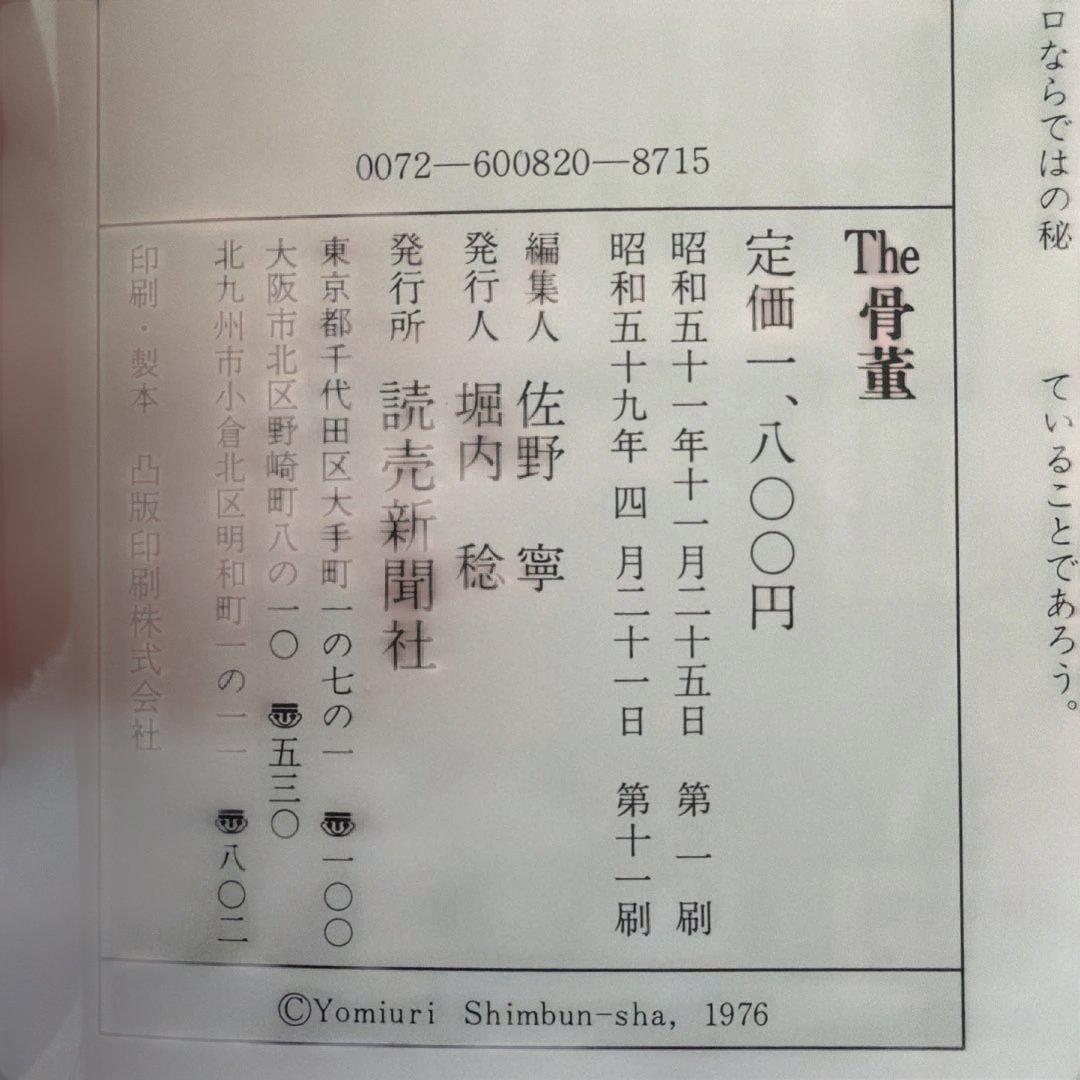 ロならではの秘
ていることであろう。
0072―600820―8715
The骨董
定価一、八〇〇円
昭和五十一年十一月二十五日 第一刷
昭和五十九年四月二十一日 第十一刷
編集人 佐野 寧
発行人 堀内 稔
発行所 読売新聞社
東京都千代田区大手町一の七の一 〒一〇〇
大阪市北区野崎町八の一〇 〒五三〇
北九州市小倉北区明和町一の一一 〒八〇二
印刷・製本 凸版印刷株式会社
©Yomiuri Shimbun-sha, 1976